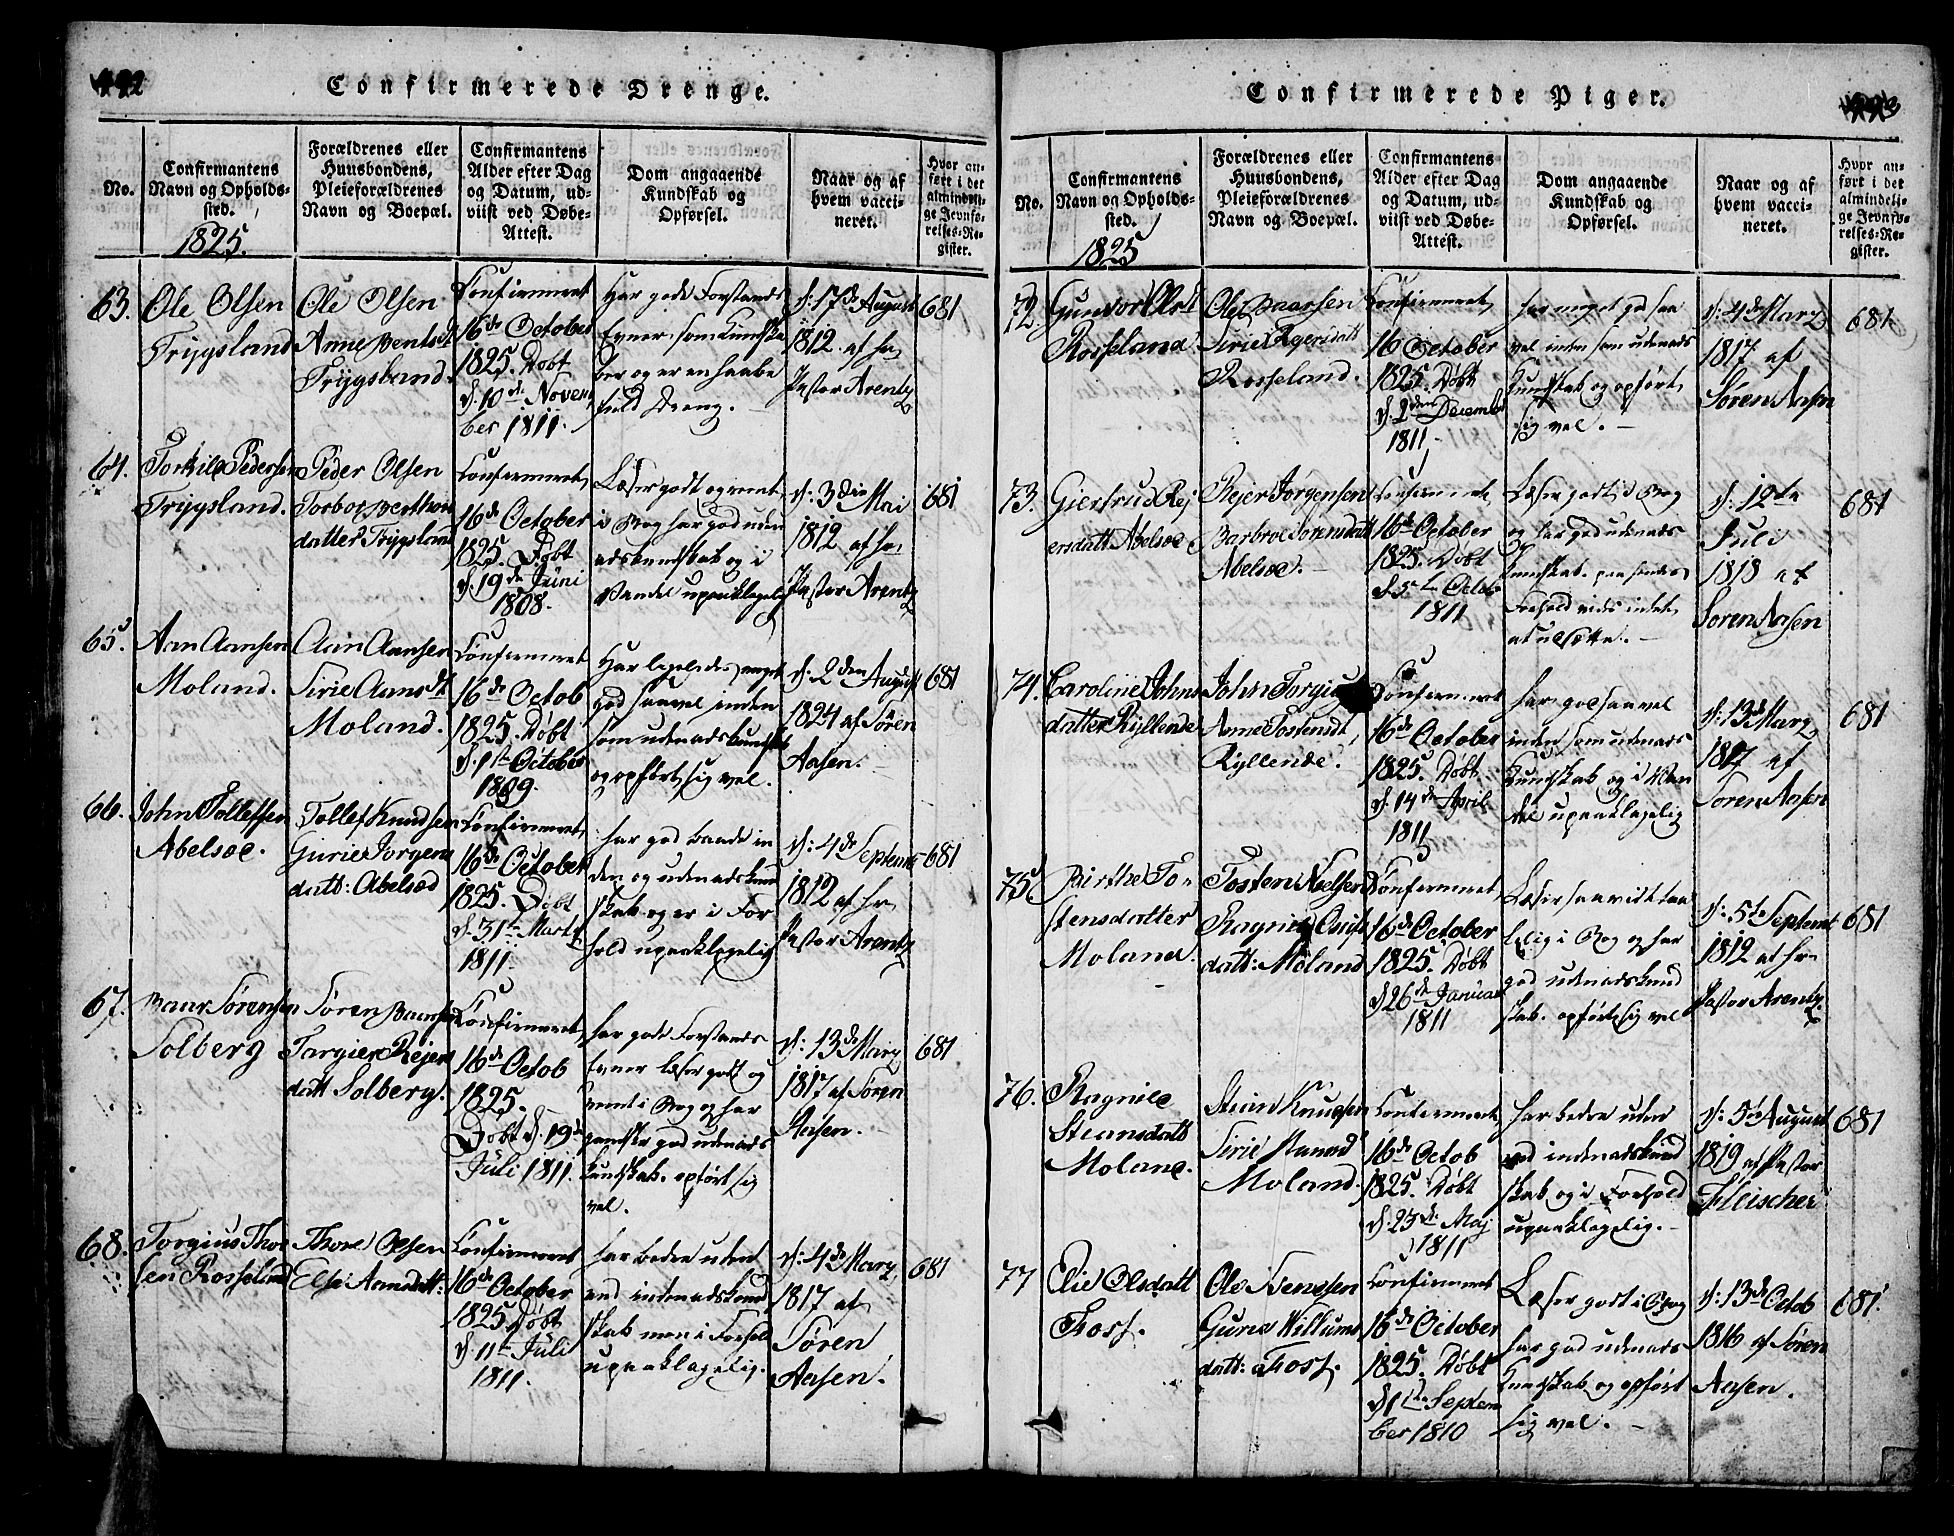 Confirmerede Drenge.
No.
Confirmantens
Navn og Opholds-
sted.
1825.
Forældrenes eller
Huusbondens,
Pleieforældrenes
Navn og Boepæl.
Confirmantens
Alder efter Dag
og Datum, ud-
viist ved Døbe-
Attest.
Dom angaaende
Kundskab og
Opførsel.
Naar og af
hvem vacci-
neret.
Hvor an-
ført i det
almindeli-
ge Jevnfø-
relses-Re-
gister.
63.
Ole Olsen
Trygsland
Ole Olsen
Anne Bentsdt
Trygsland.
Confirmeret
16de October
1825. Døbt
d. 10de Novem
ber 1811.
Har gode Forstands
Evner, som Kundska
ber og er en haabe
fuld Dreng.
d: 17de August
1812 af hr
Pastor Arentz
681
64.
Torkild Pedersen
Trygsland.
Peder Olsen
Torbor Berthou
datter Trygsland
Confirmeret
16de October
1825. Døbt
d. 19de Juni
1808.
Læser godt og rent
i Bog har god uden
adskundskab og i
Vandel upaaklagelig
d: 3die Mai
1812 af hr
Pastor Arentz
681
65.
Aan Aansen
Moland.
Aan Aansen
Sirie Aansdt
Moland.
Confirmeret
16de Octob
1825. Døbt
d. 1ste October
1809.
Har ligeledes meget
god saavel inden
som udenadskundskab
og opført sig vel.
d: 2den August
1824 af Søren
Aasen.
681
66.
John Tollefsen
Abelsoe.
Tollef Knudsen
Gurie Jorgens
datt: Abelsoe
Confirmeret
16de October
1825. Døbt
d. 31te Martz
1811.
har god baade in
den og udenadskund
skab og er i For
hold upaaklagelig
d: 4de Septemb
1812 af hr
Pastor Arentz
681
67.
Baar Sørensen
Solberg
Søren Baarsen
Targier Rejers
datt Solberg.
Confirmeret
16de Octob
1825.
Døbt d. 19de
Juli 1811.
har gode Forstands
Evner læser godt og
rent i Bog og har
ganske god udenads
kundskab. opført sig
vel.
d: 13de Marz
1817 af Søren
Aasen.
681
68.
Torgius Thor
sen Rosseland
Thore Olsen
Else Aanudatt:
Confirmeret
16de October
1825 Døbt
d. 11te Juli
1811.
har bedre udend
end indenadskund
skab men i Forhold
upaaklagelig.
d: 4de Marz
1817 af
Søren
Aasen.
681
Confirmerede Piger.
No.
Confirmantens
Navn og Opholds-
sted.
1825
Forældrenes eller
Huusbondens,
Pleieforældrenes
Navn og Boepæl.
Confirmantens
Alder efter Dag
og Datum, ud-
viist ved Døbe-
Attest.
Dom angaaende
Kundskab og
Opførsel.
Naar og af
hvem vacci-
neret.
Hvor an-
ført i det
almindeli-
ge Jevnfø-
relses-Re-
gister.
72.
Gunvor Olsdt
Rosseland
Ole Baarsen
Sirie Rejersdatt
Rosseland.
Confirmeret
16 October
1825. Døbt
December
1811.
har meget god saa
vel inden som udenads
Kundskab og opført
sig vel.
d: 4de Marz
1817 af
Søren Aasen
681
73.
Giertrud Rej
ersdatt Abelsoe
Rejer Jørgensen
Barbroe Sørensdatt
Abelsoe.
Confirmeret
16de October
1825. Døbt
d. 5te Octob
1811
Læser godt i Bog
og har god udenads
Kundskab. paa hendes
Forhold vides intet
at udsætte.
d: 12te
Juli
1818 af
Søren Aasen
681
74.
Caroline Johns
datter Ryllende
John Torgius
Anne Tostensdt,
Ryllende.
Confirmeret
16de October
1825. Døbt
d. 14de April
1811
har god saavel
inden som udenads
Kundskab og i Van
del upaaklagelig
d: 13de Marz
1817 af
Søren Aasen
681
75.
Birthe To-
stensdatter
Moland.
Tosten Nielsen
Ragnild
datt: Moland
Confirmeret
16de October
1825. Døbt
d 26de Januar
1811
Læser saavidt taa
lelig i Bog og har
god udenadskund
skab. opført sig vel
d: 5te Septemb
1812 af hr
Pastor Arentz.
681
76.
Ragnild
Steansdatt
Moland.
Stean Knudsen
Sirie
Moland.
Confirmeret
16de Octob
1825. Døbt
d. 23de Maj
1811
har bedre uden
end indenadskund
skab og i Forhold
upaaklagelig.
d: 5te August
1819 af Pastor
Fleischer
681
77
Elie Olsdatt
Foss.
Ole Svendsen
Gurie Willums
datt: Foss.
Confirmeret
16de October
1825. Døbt
d 1ste Septem
ber 1810
Læser godt i Bog
har god udenads
Kundskab og opført
sig vel.
d: 13de Octob
1816 af Søren
Aasen.
681.